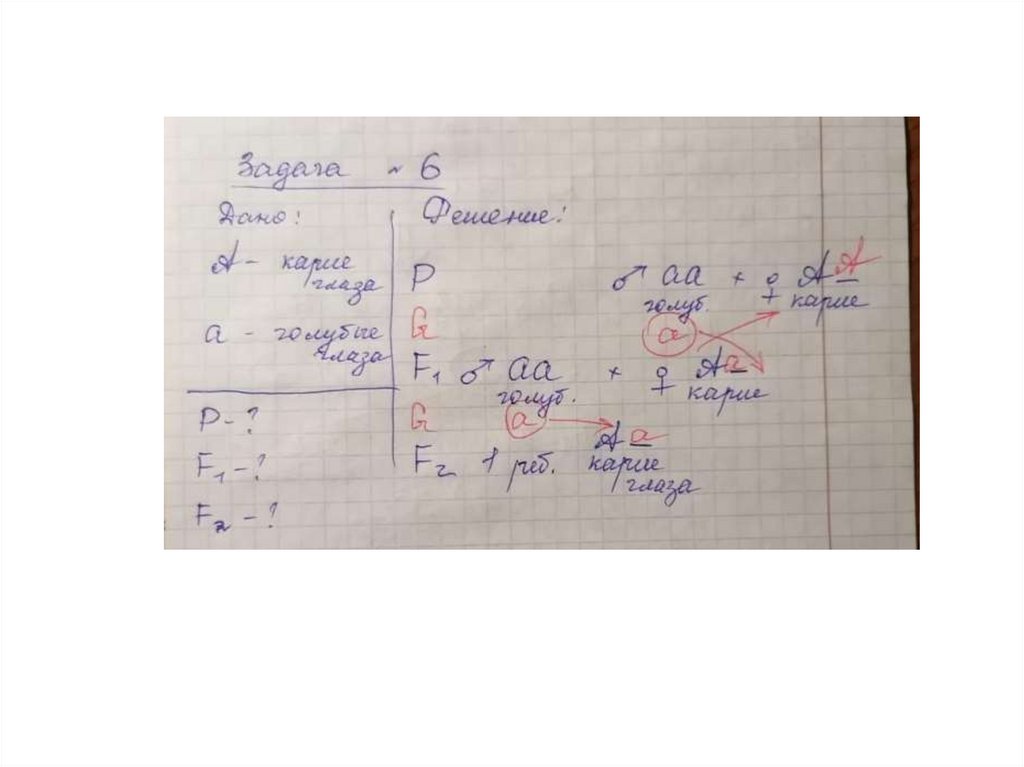 Задача № 6
Дано:
Решение:
A - карие
глаза
a - голубые
глаза
P - ?
F₁ - ?
F₂ - ?
P ♂ aa × ♀ AA
голуб. карие
G a
F₁ ♂ aa × ♀ Aa
голуб. карие
G a
F₂ 1 реб. Aa
карие
глаза